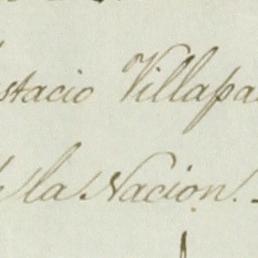 stacio Villapa
la Nacion.